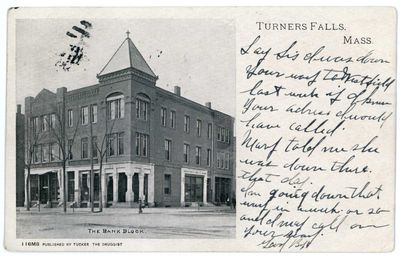 TURNERS FALLS,
MASS.
Say Sis I was down
your way to Hatfield
last week if I knew
your adress I would
have called.
Mary told me she
was down there.
that day.
I'm going down that
way in a week or so
and I may call on
your
THE BANK BLOCK.
116MS PUBLISHED BY TUCKER THE DRUGGIST